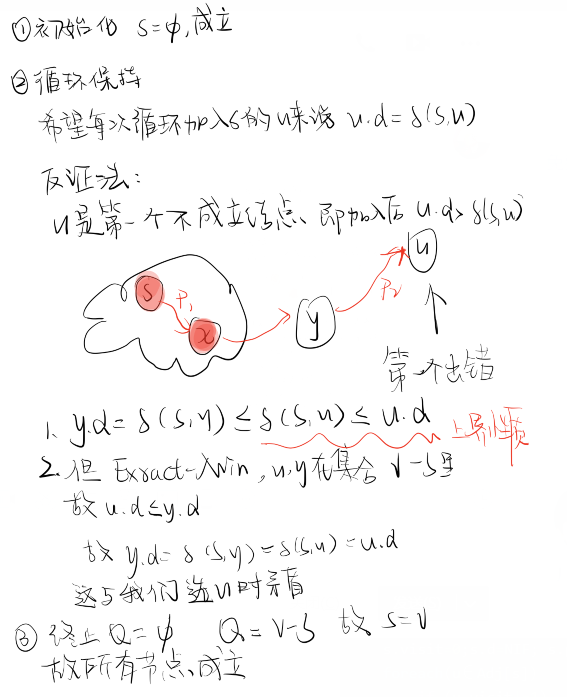 ①初始化 S=φ,成立
②循环保持
希望每次循环加入S的u来说 u.d=δ(S,u)
反证法:
u是第一个不成立结点、即加入后 u.d>δ(s,u)
S P₁ x y P₂ u
第一个出错
1、y.d=δ(S,y)≤δ(S,u)≤u.d 上界性质
2.但 Exract-Min,u,y在集合 V-S里
故 u.d≤y.d
故 y.d=δ(S,y)=δ(S,u)=u.d
这与我们选u时矛盾
③终止 Q=φ Q=V-S 故 S=V
故所有节点、成立